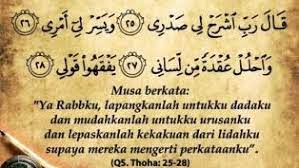 قَالَ رَبِّ اشْرَحْ لِي صَدْرِي ٢٥ وَيَسِّرْ لِي أَمْرِي ٢٦
وَاحْلُلْ عُقْدَةً مِنْ لِسَانِي ٢٧ يَفْقَهُوا قَوْلِي ٢٨
Musa berkata:
"Ya Rabbku, lapangkanlah untukku dadaku
dan mudahkanlah untukku urusanku
dan lepaskanlah kekakuan dari lidahku
supaya mereka mengerti perkataanku".
(QS. Thoha: 25-28)